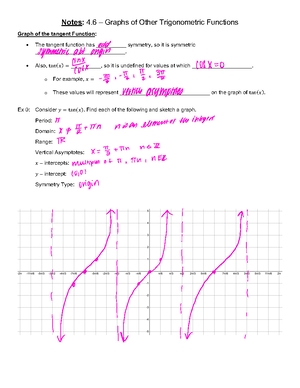 Notes: 4.6 – Graphs of Other Trigonometric Functions
Graph of the tangent Function:
• The tangent function has odd symmetry, so it is symmetric
symmetric abt origin.
• Also, tan(x) = sinx/cosx, so it is undefined for values at which cos x = 0.
o For example, x = -π/2, π/2, 3π/2
o These values will represent vertical asymptotes on the graph of tan(x).
Ex 0: Consider y = tan(x). Find each of the following and sketch a graph.
Period: π
Domain: x ≠ π/2 + πn n is an element of the integers
Range: ℝ
Vertical Asymptotes: x = π/2 + πn n ∈ ℤ
x – intercepts: multiples of π, πn, n ∈ ℤ
y – intercept: (0,0)
Symmetry Type: origin